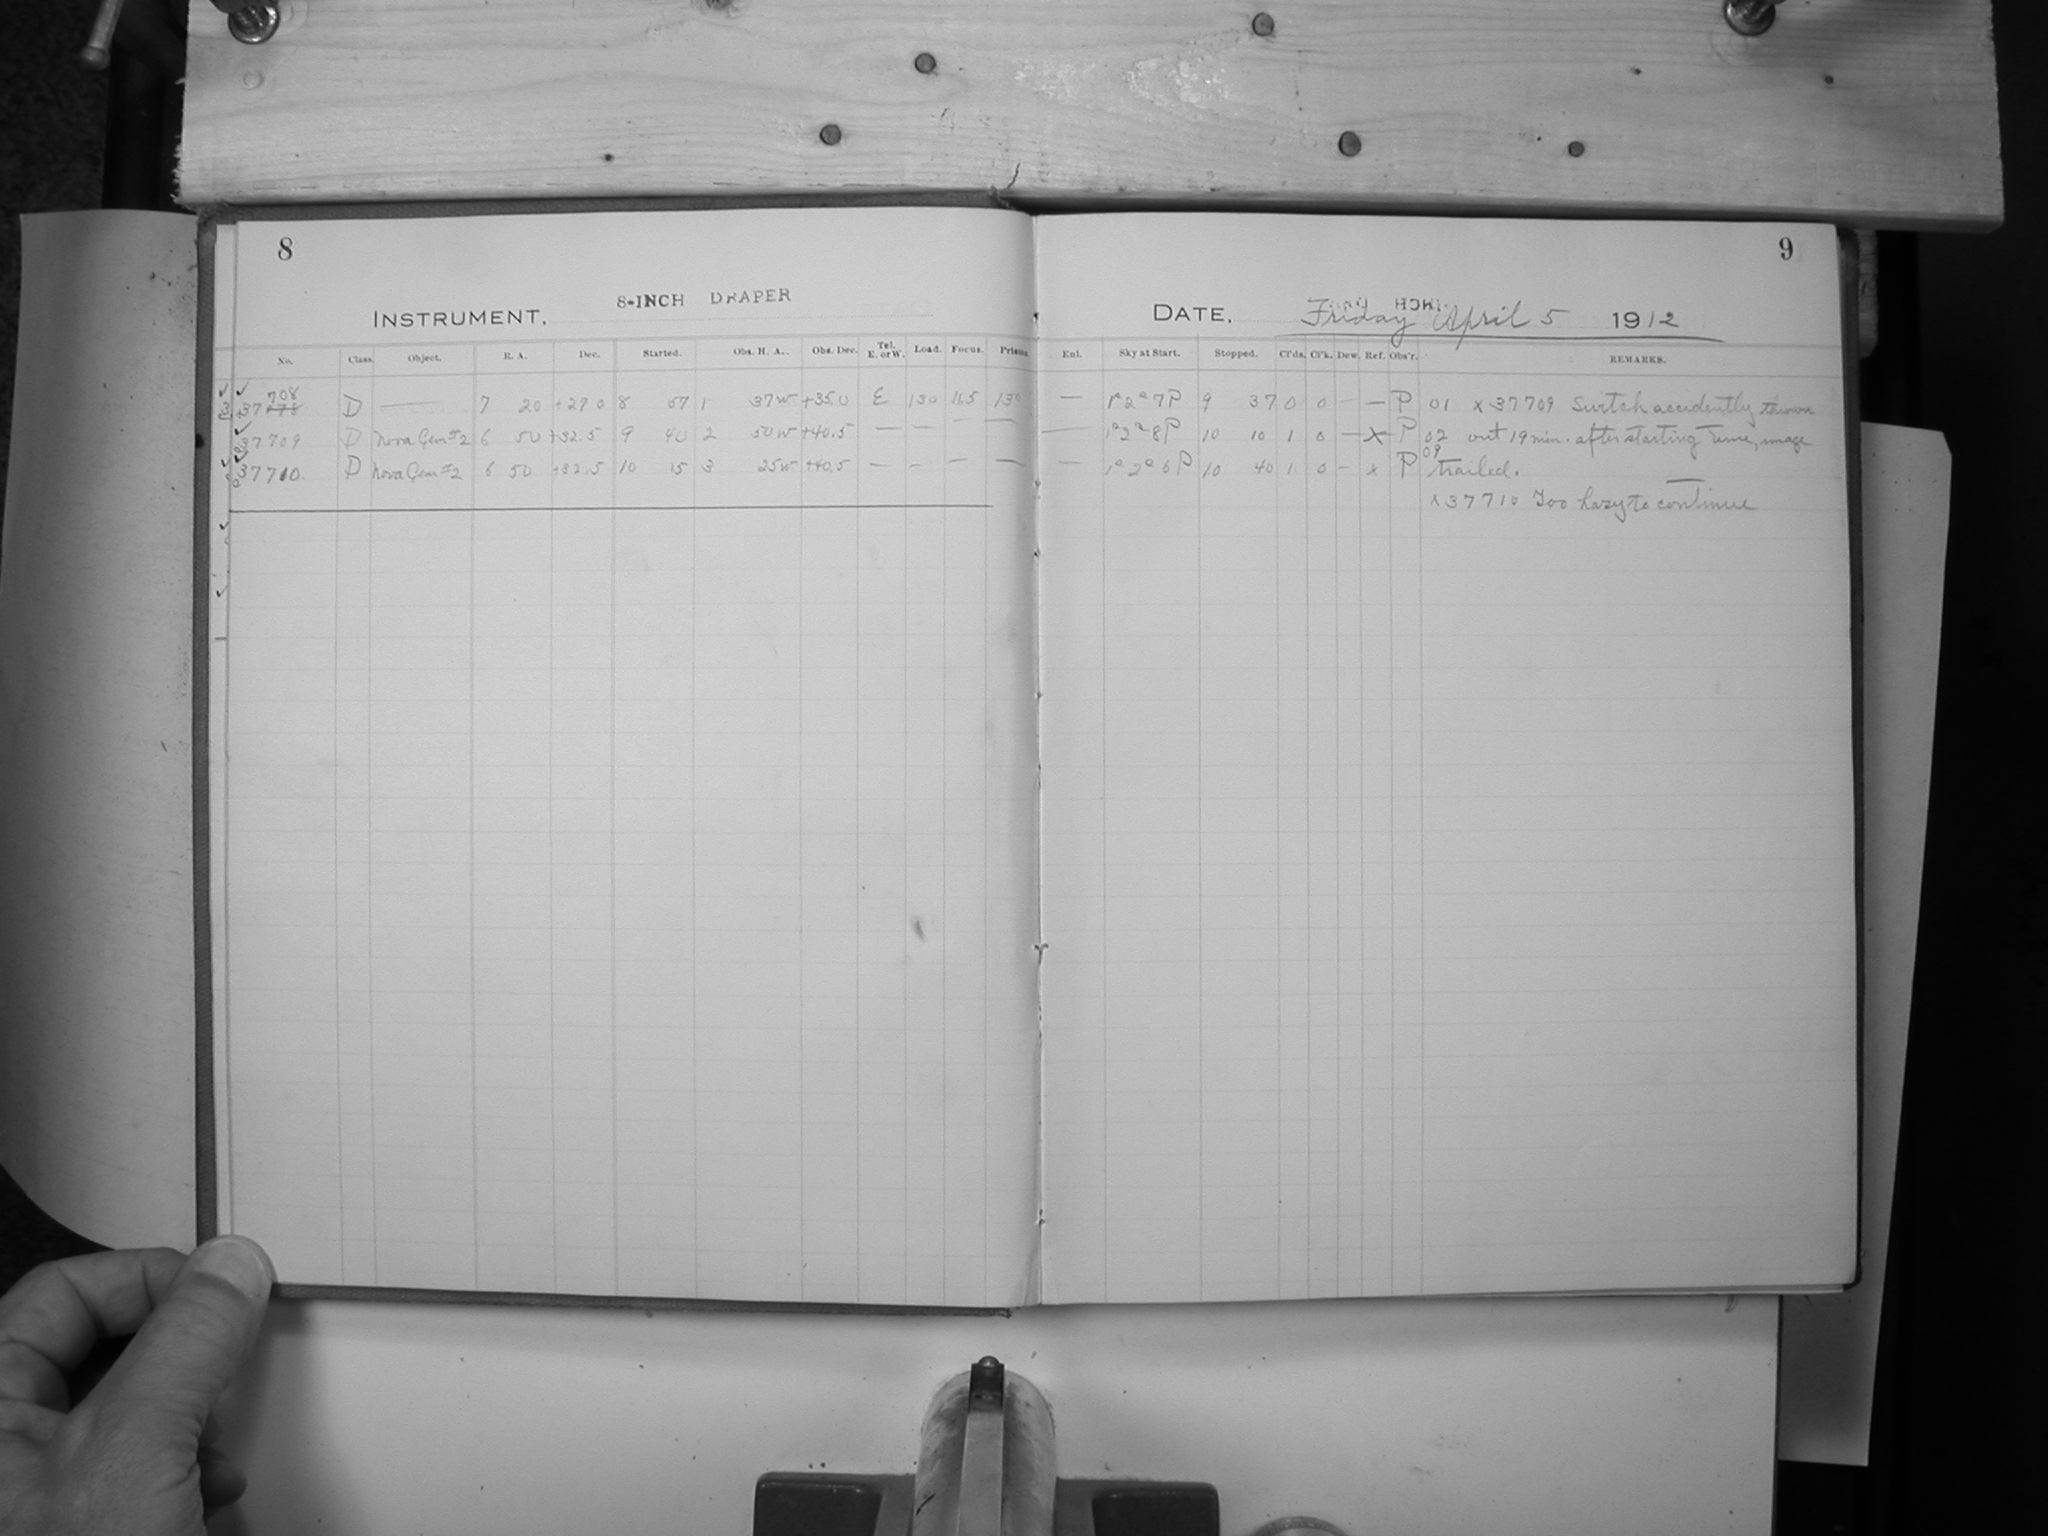 8
9
INSTRUMENT. 8-INCH DRAPER
DATE. Friday April 5 1912
No. Class. Object. R. A. Dec. Started. Obs. H. A. Obs. Dec. Tel. E. or W. Load. Focus. Prisms. Enl. Sky at Start. Stopped. Cl'ds. Cl'k. Dew. Ref. Obs'r. REMARKS.
708
37 D — 7 20 +27 0 8 57 1 37w +35.0 E 130 11.5 — 1ª2ª7P 9 37 0 0 — — P 01 x 37709 Switch accidently thrown
37709 D Nova Gem #2 6 50 +32.5 9 40 2 50w +40.5 — — — — — 1ª2ª8P 10 10 1 0 — x P 02 out 19 min. after starting time, image
37710. D Nova Gem #2 6 50 +32.5 10 15 3 25w +40.5 — — — — — 1ª2ª6P 10 40 1 0 — x P 09 trailed.
x 37710 Too hazy to continue